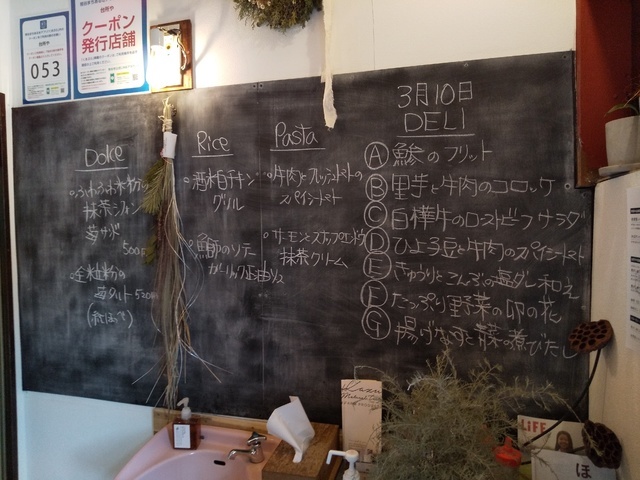 053
クーポン
発行店舗
3月10日
DELI
Ⓐ 鯵のフリット
Ⓑ 里芋と牛肉のコロッケ
Ⓒ 白樺牛のローストビーフサラダ
Ⓓ ひよこ豆と牛肉のスパイシートマト
Ⓔ きゅうりとこんぶの塩ダレ和え
Ⓕ たっぷり野菜の卯の花
Ⓖ 揚げなすと青菜の煮びたし
Pasta
牛肉とフレッシュトマトの
スパイシートマト
サーモンとスナップエンドウ
抹茶クリーム
Rice
チキン
グリル
鰤のソテー
ガーリック正油ソース
Dolce
ふわふわ米粉の
抹茶シフォン
苺サンド
500
全粒粉の
苺タルト 520
LiFE
ほ